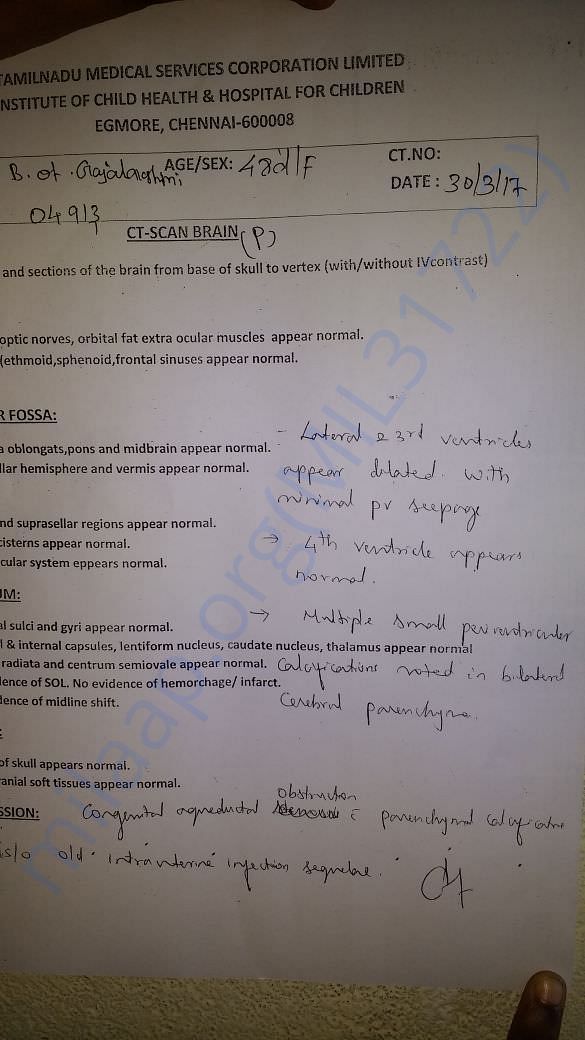 TAMILNADU MEDICAL SERVICES CORPORATION LIMITED
NSTITUTE OF CHILD HEALTH & HOSPITAL FOR CHILDREN
EGMORE, CHENNAI-600008
B. of. Rajalakshmi AGE/SEX: 48d/F CT.NO:
DATE : 30/3/17
04913
CT-SCAN BRAIN (P)
and sections of the brain from base of skull to vertex (with/without IVcontrast)
optic norves, orbital fat extra ocular muscles appear normal.
(ethmoid,sphenoid,frontal sinuses appear normal.
R FOSSA:
- Lateral & 3rd ventricles
a oblongats,pons and midbrain appear normal.
llar hemisphere and vermis appear normal.
appear dilated with
minimal pv seepage
nd suprasellar regions appear normal.
cisterns appear normal.
→ 4th ventricle appears
cular system eppears normal.
normal.
UM:
→ Multiple small periventricular
al sulci and gyri appear normal.
l & internal capsules, lentiform nucleus, caudate nucleus, thalamus appear normal
radiata and centrum semiovale appear normal.
Calcifications noted in bilateral
dence of SOL. No evidence of hemorchage/ infarct.
dence of midline shift.
Cerebral parenchyma.
:
of skull appears normal.
anial soft tissues appear normal.
obstruction
SSION: Congenital aqueductal c̄ parenchymal calcification
is/o old intrauterine infection sequelae.
milaap.org(MIL31722)